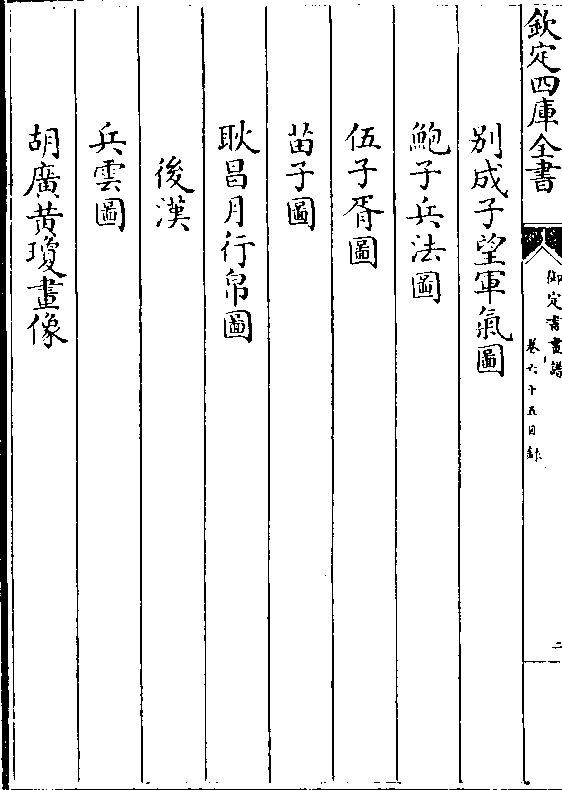 欽定四庫全書
御定書畫譜
卷六十五目錄
二
别成子望軍氣圖
鮑子兵法圖
伍子胥圖
苗子圖
耿昌月行帛圖
後漢
兵雲圖
胡廣黄瓊畫像